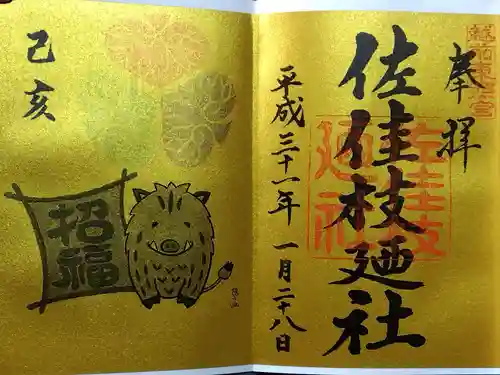 奉拝
佐佳枝廼社
佐佳枝
廼社
平成三十一年 一月二十八日
己亥
招福